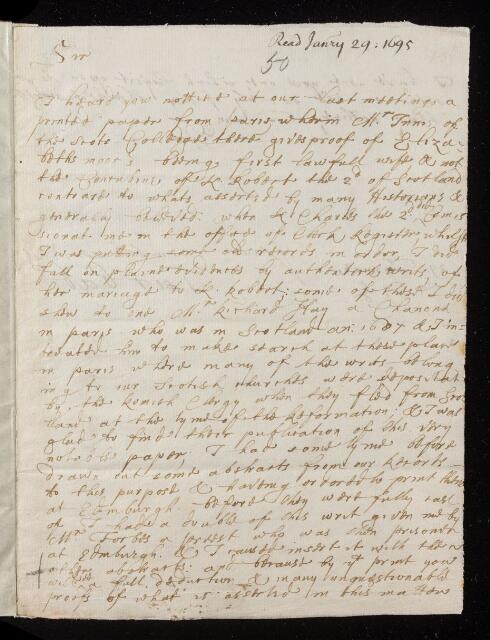 Read Janry 29: 1695
50
Sir
I heard you nottice at our last meetings a
printed paper from paris wherin Mr Inns of
the Scots Colledge there gives proof of Eliza
beths moor's being first lawfull wife & not
the Concubine of K. Robert the 2d of Scotland
contrare to whats asserted by many Historians &
generally beleived: when K Charles the 2d
me in the office of Clerk Register, whilst
I was puting some old records in order, I did
fall on plaine evidences by authentick writs of
her mariage to K. Robert; some of these I did
shew to one Mr Richard Hay a Chanon
in parys who was in Scotland an: 1687 & I in
treated him to make search at these places
in paris where many of the writs belong
ing to our Scotish churches were deposited
by the Romish Clergy when they fled from Scot
land at the tyme of the Reformation; & I was
glad to find their publication of this very
notable paper. I had some tyme before
drawn out some abstracts from our Records
to this purpose & having ordord to print them
at Edinburgh. before they were fully cast
off I had a double of this writ given me by
Mr Forbes a preist who was then prisoner
at Edinburgh. & I caused insert it with the
others abstracts: and because by it print you
will full deduction & many unquestionable
proofs of what is asserted in this matter